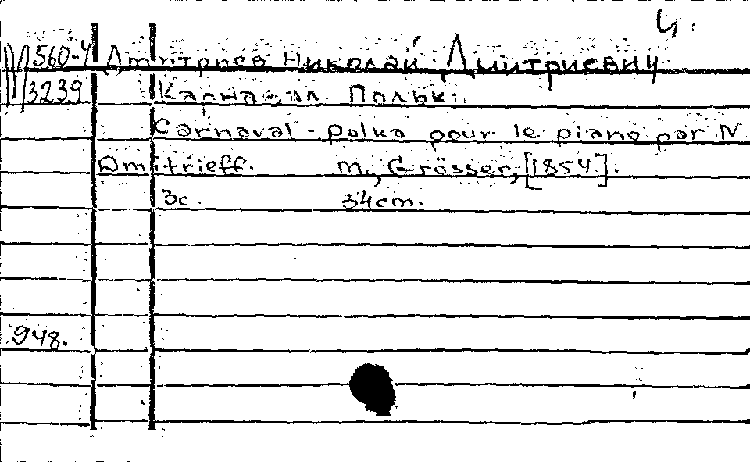 Ч.
М 560-4 Дмитриев Николай Дмитриевич
3239 Карнавал Польк.
Carnaval-polka pour le piano par N
Dmitrieff. M., Grösser, [1854].
3с. 34cm.
948.